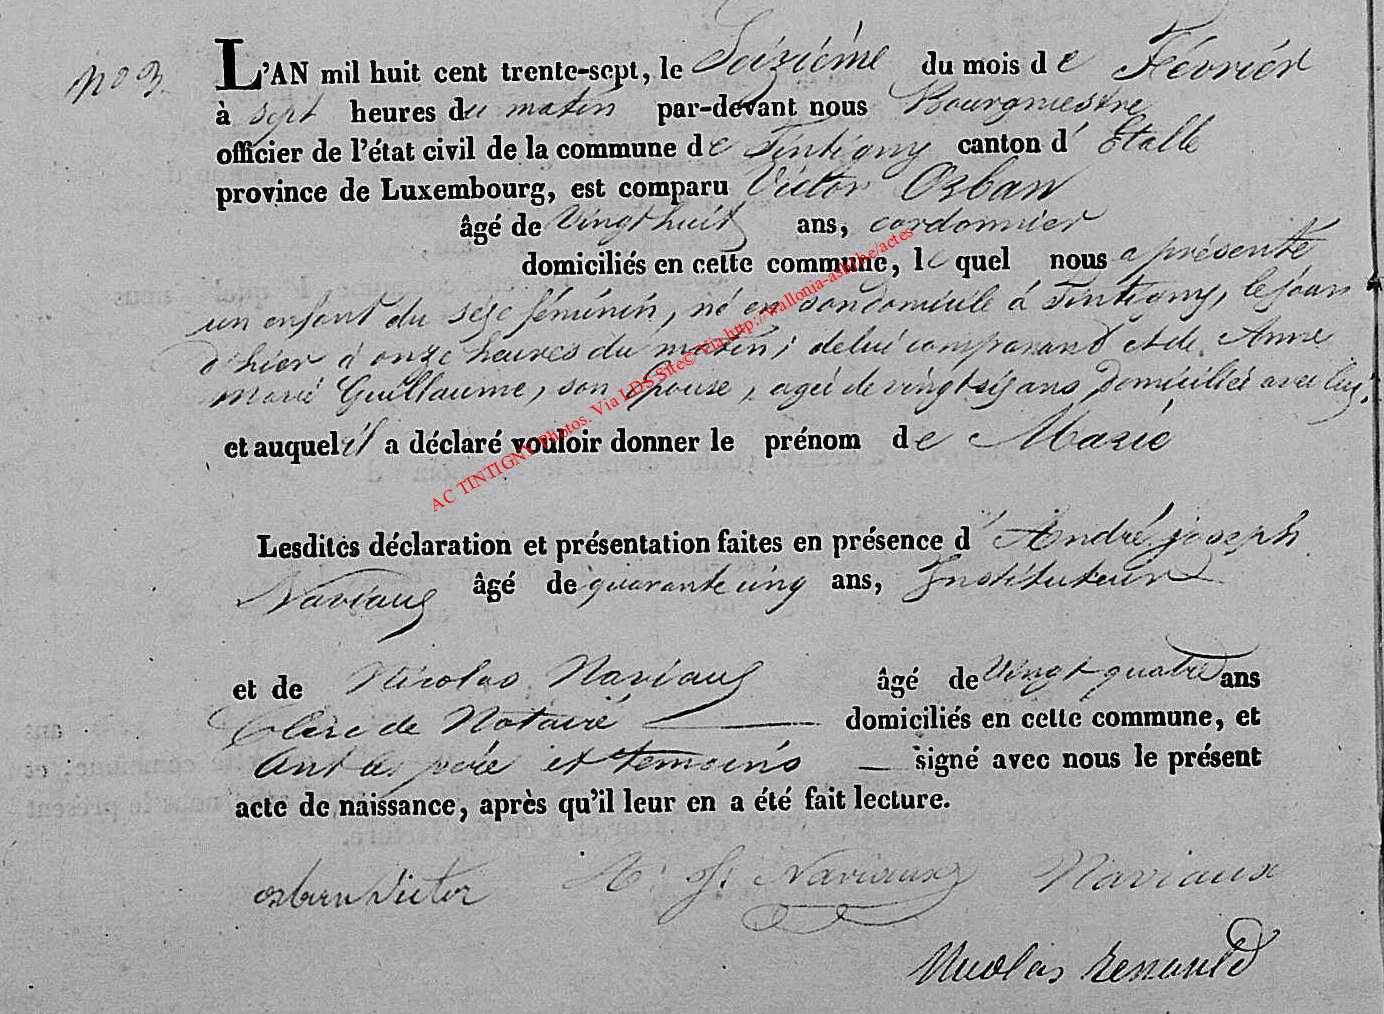 No 3.
L'AN mil huit cent trente-sept, le Seizième du mois de Février
à sept heures du matin par-devant nous Bourgmestre
officier de l'état civil de la commune de Tintigny canton d' Etalle
province de Luxembourg, est comparu Victor Ozban
âgé de vingt huit ans, cordonnier
domiciliés en cette commune, lequel nous a présenté
un enfant du séxe féminin, né en son domicile à Tintigny, le jour
d'hier à onze heures du matin, de lui comparant et de Anne
Marie Guillaume, son Epouse, agée de vingt six ans, domiciliée avec lui,
et auquel il a déclaré vouloir donner le prénom de Marie
Lesdites déclaration et présentation faites en présence d' André joseph
Naviaux âgé de quarante cinq ans, Instituteur
et de Nicolas Naviaux âgé de vingt quatre ans
Clerc de Notaire domiciliés en cette commune, et
ont les père et témoins signé avec nous le présent
acte de naissance, après qu'il leur en a été fait lecture.
ozban Victor A. J. Naviaux Naviaux
Nicolas Renauld
AC TINTIGNY Photos. Via LDS Site© Via http://wallonia-asbl.be/actes